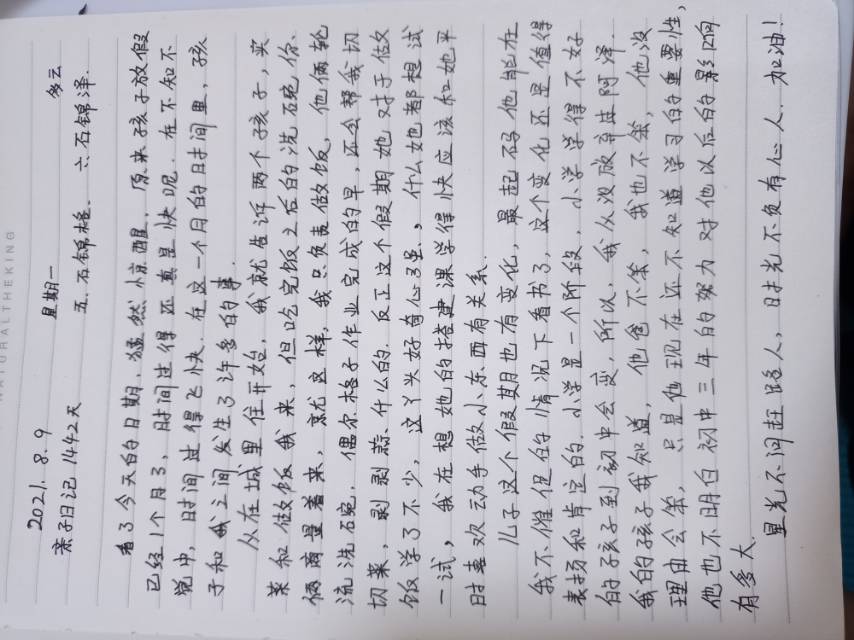 NATURALTHEKING
2021. 8. 9 星期一 多云
亲子日记 1442天 五. 石锦格. 六. 石锦泽.
看了今天的日期. 猛然惊醒, 原来孩子放假
已经1个月了, 时间过得还真是快呢. 在不知不
觉中, 时间过得飞快. 在这一个月的时间里, 孩
子和我之间发生了许多的事.
从在城里住开始, 我就告诉两个孩子, 买
菜和做饭我来, 但吃完饭之后的洗碗你
俩商量着来, 就这样, 我只负责做饭, 他俩轮
流洗碗, 偶尔格子作业完成的早, 还会帮我切
切菜, 剥剥蒜. 什么的. 反正这个假期她对于做
饭学了不少, 这丫头好奇心强, 什么她都想试
一试, 我在想她的搭建课学得快应该和她平
时喜欢动手做小东西有关系.
儿子这个假期也有变化, 最起码他能在
我不催促的情况下看书了, 这个变化还是值得
表扬和肯定的. 小学是一个阶段, 小学学得不好
的孩子到初中会变, 所以, 我从没放弃过阿泽.
我的孩子我知道, 他爸不笨, 我也不笨, 他没
理由会笨, 只是他现在还不知道学习的重要性,
他也不明白初中三年的努力对他以后的影响
有多大.
星光不问赶路人, 时光不负有心人. 加油!